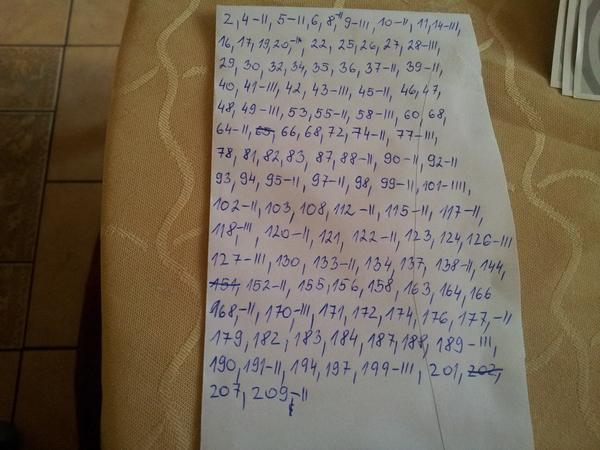 2, 4-II, 5-II, 6, 8,-II 9-III, 10-II, 11, 14-III,
16, 17, 19, 20,-II, 22, 25, 26, 27, 28-III,
29, 30, 32, 34, 35, 36, 37-II, 39-II,
40, 41-III, 42, 43-III, 45-II, 46, 47,
48, 49-III, 53, 55-II, 58-III, 60, 68,
64-II, 65, 66, 68, 72, 74-II, 77-III,
78, 81, 82, 83, 87, 88-II, 90-II, 92-II
93, 94, 95-II, 97-II, 98, 99-II, 101-IIII,
102-II, 103, 108, 112-II, 115-II, 117-II,
118,-III, 120-II, 121, 122-II, 123, 124, 126-III
127-III, 130, 133-II, 134, 137, 138-II, 144,
151, 152-II, 155, 156, 158, 163, 164, 166
168,-II, 170-III, 171, 172, 174, 176, 177,-II
179, 182, 183, 184, 187, 188, 189-III,
190, 191-II, 194, 197, 199-III, 201, 202,
207, 209,-II